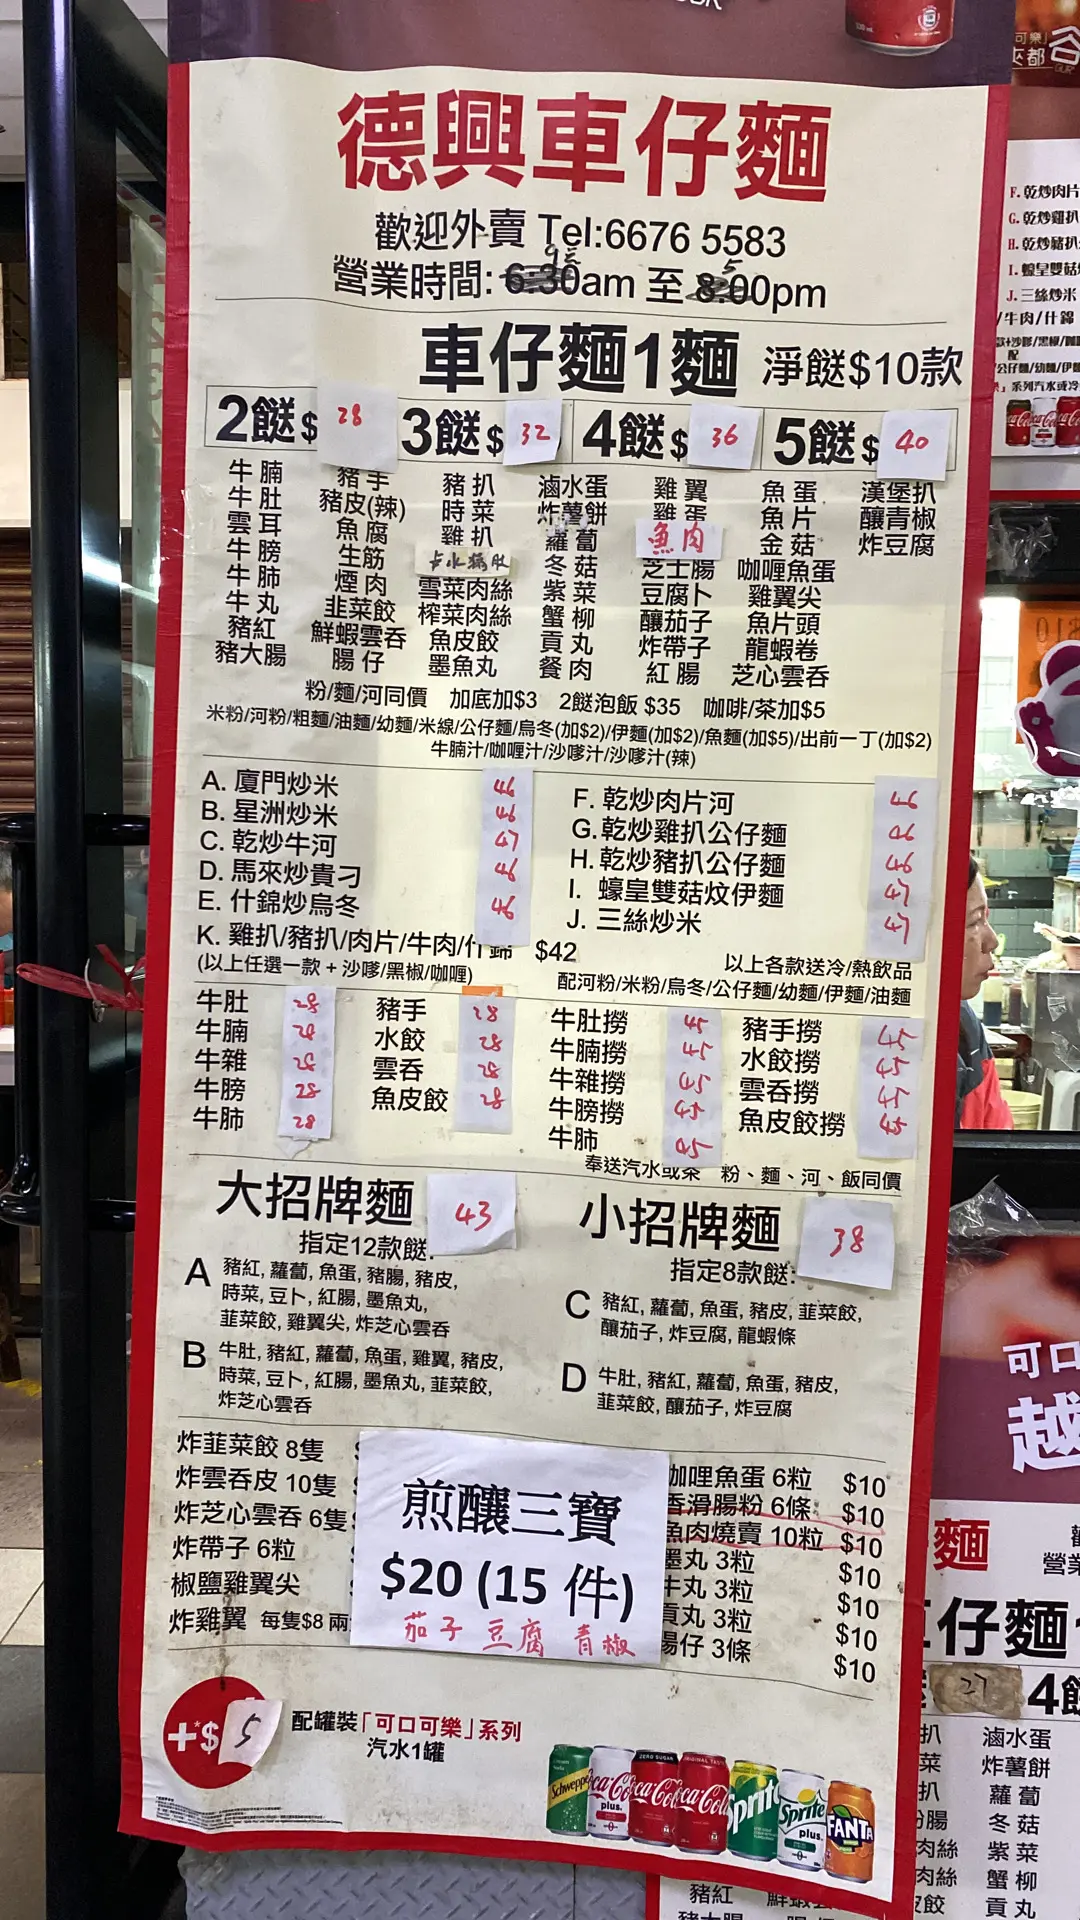 德興車仔麵
歡迎外賣 Tel:6676 5583
營業時間: 6:30am 至 8:00pm
車仔麵1麵 淨餸$10款
2餸$ 28 3餸$ 32 4餸$ 36 5餸$ 40
牛腩 豬手 豬扒 滷水蛋 雞翼 魚蛋 漢堡扒
牛肚 豬皮(辣) 時菜 炸薯餅 雞蛋 魚片 釀青椒
雲耳 魚腐 雞扒 蘿蔔 魚肉 金菇 炸豆腐
牛膀 生筋 冬菇 芝士腸 咖喱魚蛋
牛肺 煙肉 雪菜肉絲 紫菜 豆腐卜 雞翼尖
牛丸 韭菜餃 榨菜肉絲 蟹柳 釀茄子 魚片頭
豬紅 鮮蝦雲吞 魚皮餃 貢丸 炸帶子 龍蝦卷
豬大腸 腸仔 墨魚丸 餐肉 紅腸 芝心雲吞
粉/麵/河同價 加底加$3 2餸泡飯 $35 咖啡/茶加$5
米粉/河粉/粗麵/油麵/幼麵/米線/公仔麵/烏冬(加$2)/伊麵(加$2)/魚麵(加$5)/出前一丁(加$2)
牛腩汁/咖喱汁/沙嗲汁/沙嗲汁(辣)
A. 廈門炒米 46
B. 星洲炒米 46
C. 乾炒牛河 47
D. 馬來炒貴刁 46
E. 什錦炒烏冬 46
F. 乾炒肉片河 46
G.乾炒雞扒公仔麵 46
H. 乾炒豬扒公仔麵 46
I. 蠔皇雙菇炆伊麵 47
J. 三絲炒米 47
K. 雞扒/豬扒/肉片/牛肉/什錦 $42
(以上任選一款 + 沙嗲/黑椒/咖喱)
以上各款送冷/熱飲品
配河粉/米粉/烏冬/公仔麵/幼麵/伊麵/油麵
牛肚 28 豬手 28 牛肚撈 45 豬手撈 45
牛腩 28 水餃 28 牛腩撈 45 水餃撈 45
牛雜 28 雲吞 28 牛雜撈 45 雲吞撈 45
牛膀 28 魚皮餃 28 牛膀撈 45 魚皮餃撈 45
牛肺 28 牛肺 45
奉送汽水或茶 粉、麵、河、飯同價
大招牌麵 43
指定12款餸:
A 豬紅, 蘿蔔, 魚蛋, 豬腸, 豬皮,
時菜, 豆卜, 紅腸, 墨魚丸,
韮菜餃, 雞翼尖, 炸芝心雲吞
B 牛肚, 豬紅, 蘿蔔, 魚蛋, 雞翼, 豬皮,
時菜, 豆卜, 紅腸, 墨魚丸, 韮菜餃,
炸芝心雲吞
小招牌麵 38
指定8款餸:
C 豬紅, 蘿蔔, 魚蛋, 豬皮, 韮菜餃,
釀茄子, 炸豆腐, 龍蝦條
D 牛肚, 豬紅, 蘿蔔, 魚蛋, 豬皮,
韮菜餃, 釀茄子, 炸豆腐
炸韮菜餃 8隻
炸雲吞皮 10隻
炸芝心雲吞 6隻
炸帶子 6粒
椒鹽雞翼尖
炸雞翼 每隻$8 兩
煎釀三寶
$20 (15 件)
茄子 豆腐 青椒
咖哩魚蛋 6粒 $10
香滑腸粉 6條 $10
魚肉燒賣 10粒 $10
墨丸 3粒 $10
牛丸 3粒 $10
貢丸 3粒 $10
腸仔 3條 $10
+$ 5 配罐裝「可口可樂」系列
汽水1罐
Schweppes
Coca-Cola plus.
ZERO SUGAR Coca-Cola
ORIGINAL TASTE Coca-Cola
Sprite
Sprite plus.
FANTA
F. 乾炒肉片
G. 乾炒雞扒
H. 乾炒豬扒
I. 蠔皇雙菇
J. 三絲炒米
/牛肉/什錦
可口
越
麵
營業
仔麵
27 4餸
扒 滷水蛋
菜 炸薯餅
扒 蘿蔔
腸 冬菇
肉絲 紫菜
肉絲 蟹柳
餃 貢丸
豬紅